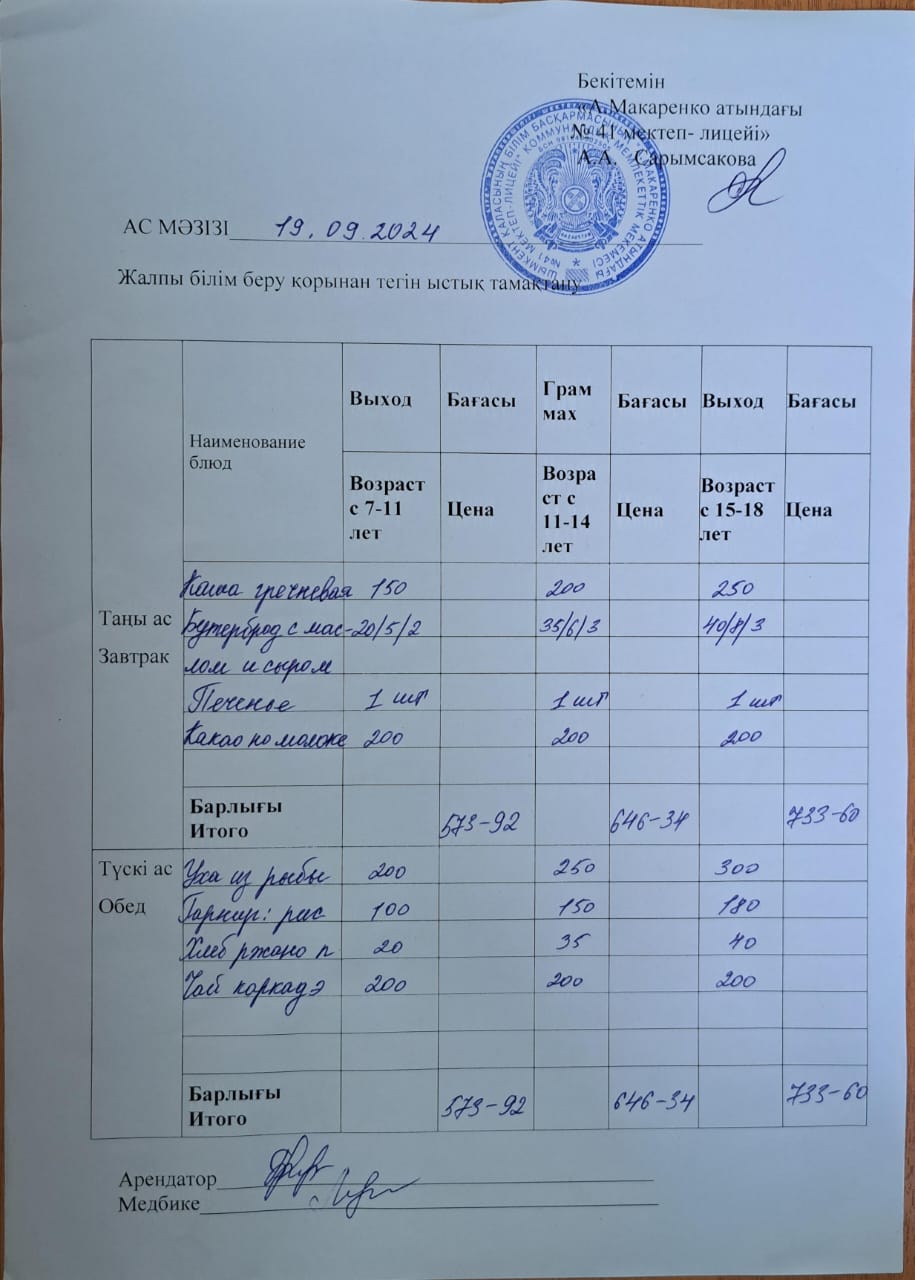 Бекітемін
«А.Макаренко атындағы
№ 41 мектеп- лицейі»
А.А. Сарымсакова
АС МӘЗІЗІ 19.09.2024
Жалпы білім беру қорынан тегін ыстық тамақтану
Наименование блюд
Выход Бағасы Грам мах Бағасы Выход Бағасы
Возраст с 7-11 лет Цена Возра ст с 11-14 лет Цена Возраст с 15-18 лет Цена
Таңы ас
Завтрак
Каша гречневая 150 200 250
Бутерброд с мас- 20/5/2 35/6/3 40/8/3
лом и сыром
Печенье 1 шт 1 шт 1 шт
Какао на молоке 200 200 200
Барлығы
Итого 573-92 646-34 733-60
Түскі ас
Обед
Уха из рыбы 200 250 300
Гарнир: рис 100 150 180
Хлеб ржано п 20 35 40
Чай каркадэ 200 200 200
Барлығы
Итого 573-92 646-34 733-60
Арендатор
Медбике